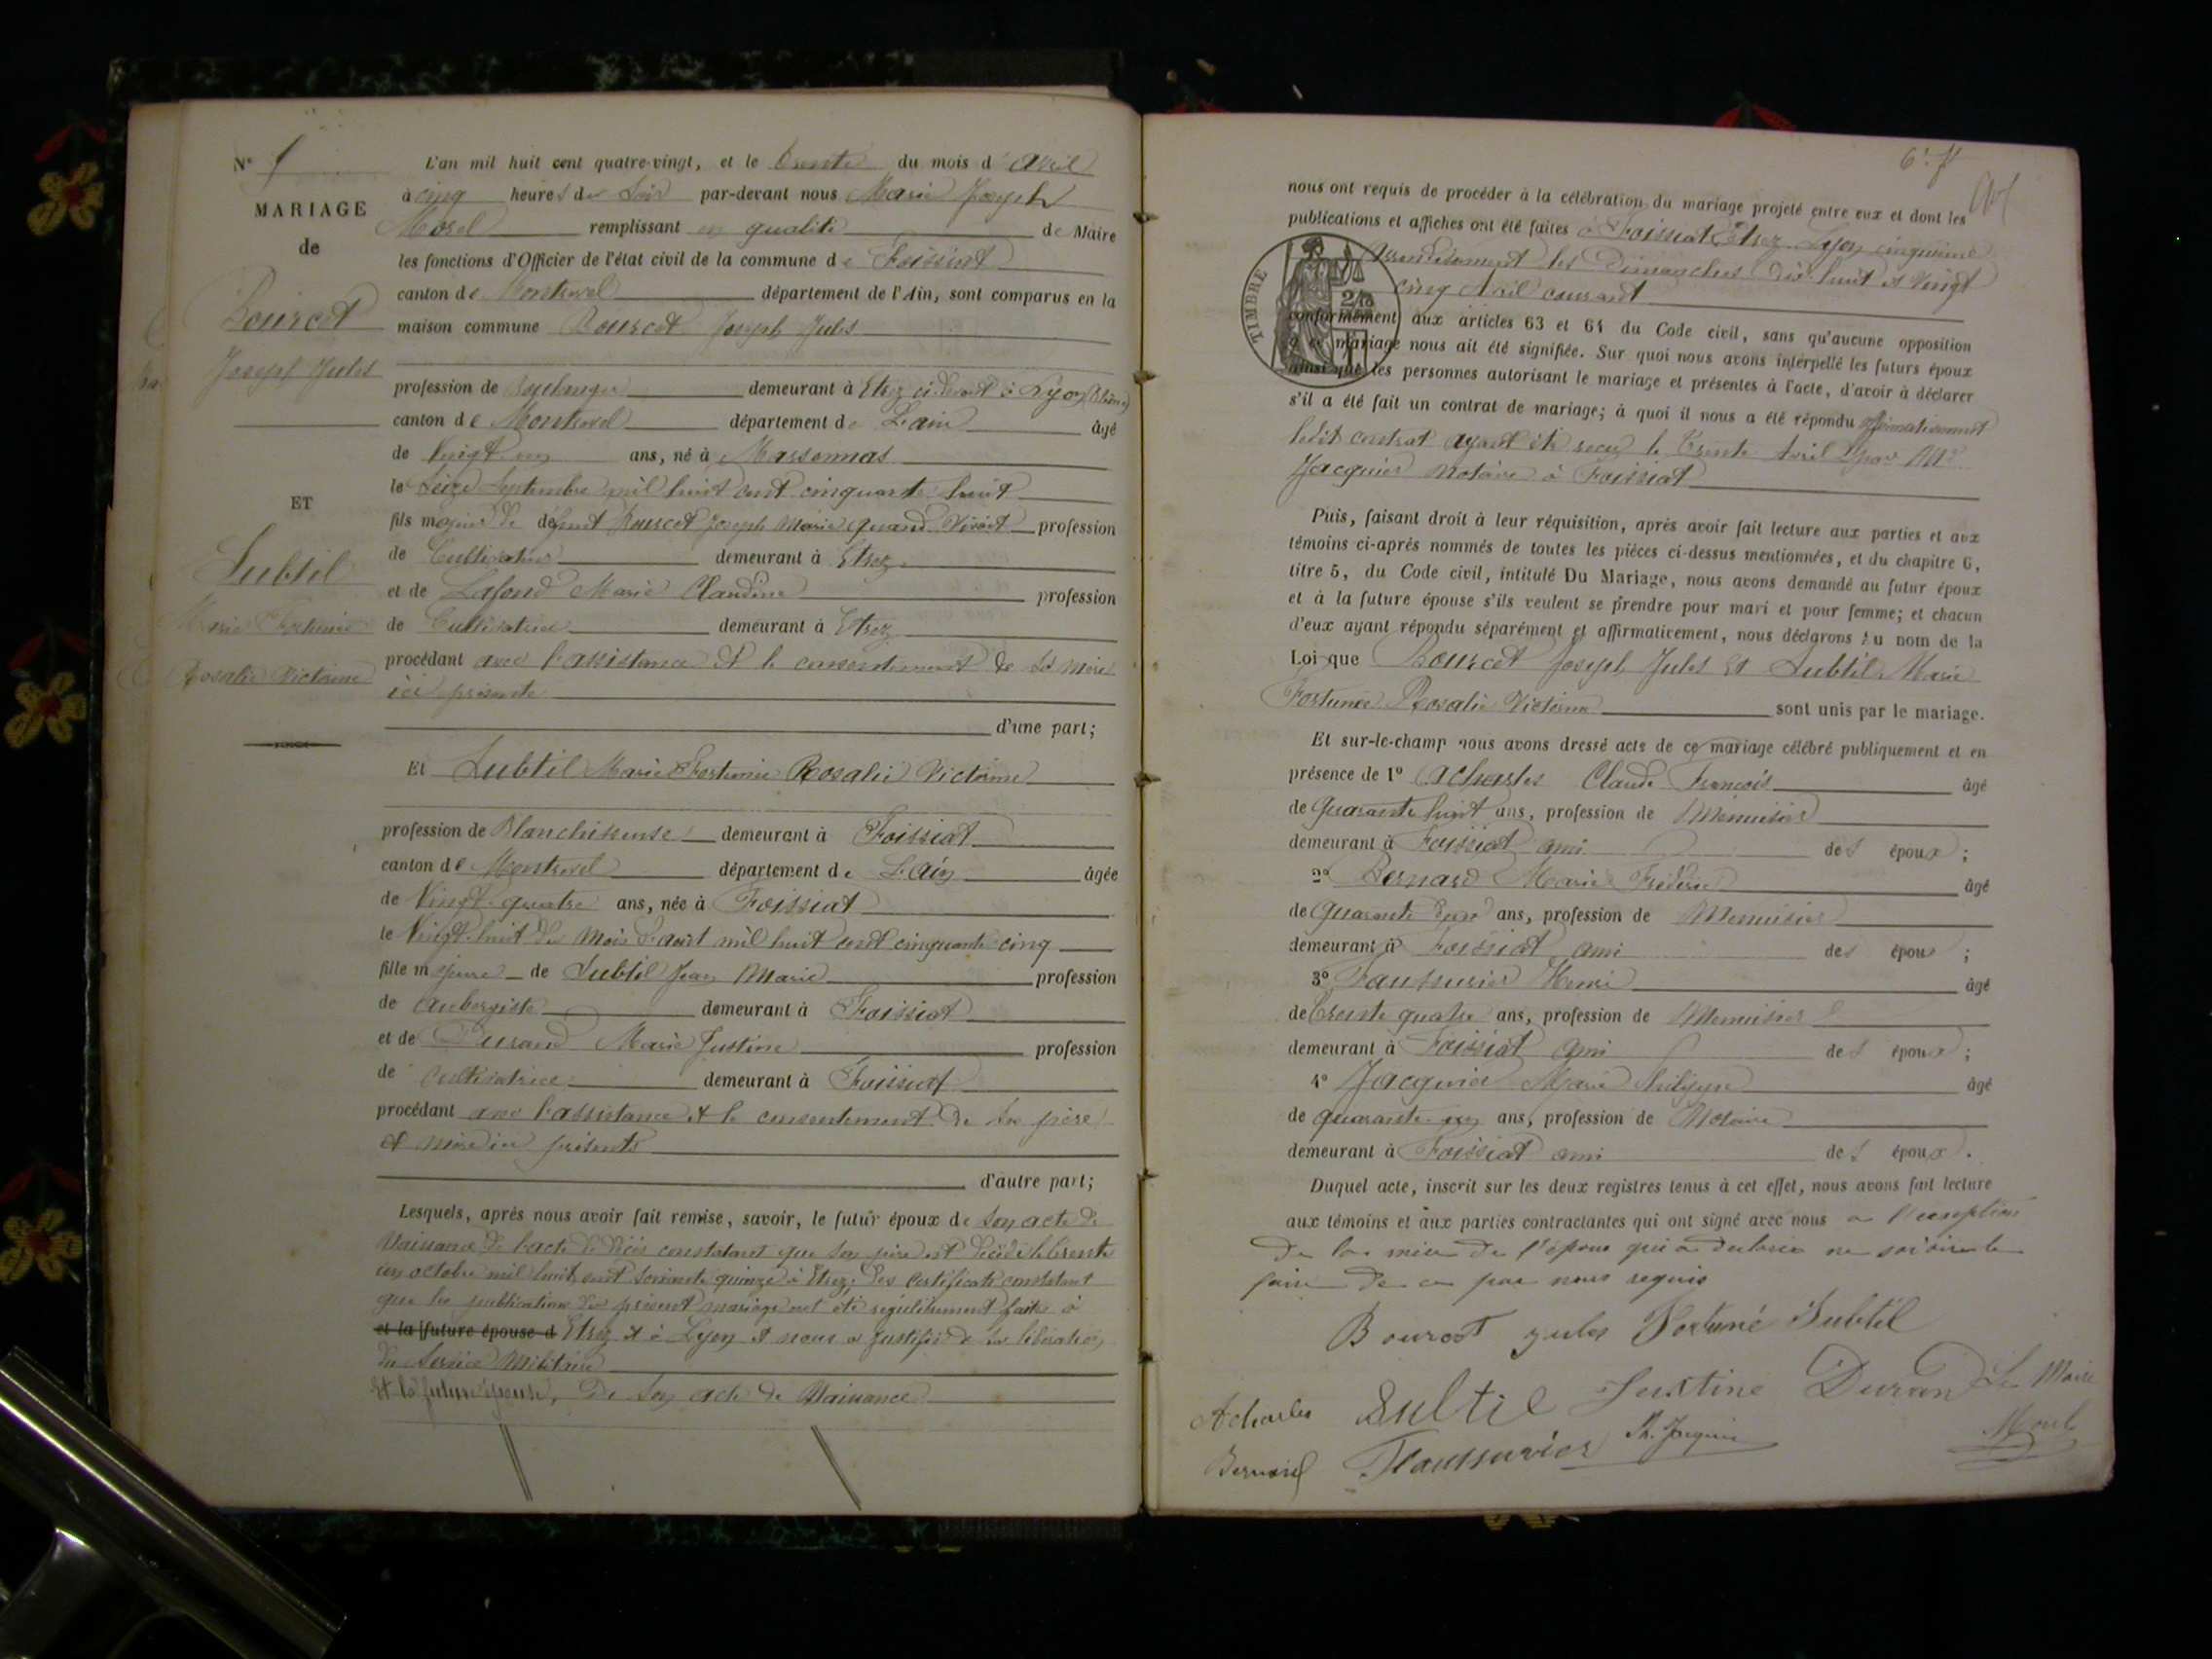 MARIAGE
de
Bourcet
Joseph Jules
ET
Subtil
Marie Fortunée
Rosalie Victorine
L'an mil huit cent quatre-vingt, et le trente du mois d'avril
à cinq heures du soir par-devant nous Marie Joseph
Morel remplissant en qualité de Maire
les fonctions d'Officier de l'état civil de la commune de Foissiat
canton de Montrevel département de l'Ain, sont comparus en la
maison commune Bourcet Joseph Jules
profession de Boulanger demeurant à Etrez ci devant à Lyon (Rhône)
canton de Montrevel département de L'ain âgé
de Vingt un ans, né à Marsonnas
le Seize Septembre mil huit cent cinquante huit
fils majeur de défunt Bourcet Joseph Marie quand vivait profession
de Cultivateur demeurant à Etrez
et de Lafond Marie Claudine profession
de Cultivatrice demeurant à Etrez
procédant avec l'assistance et le consentement de sa mère
ici présente
d'une part;
Et Subtil Marie Fortunée Rosalie Victorine
profession de Blanchisseuse demeurant à Foissiat
canton de Montrevel département de L'ain âgée
de Vingt-quatre ans, née à Foissiat
le Vingt-huit du mois d'août mil huit cent cinquante cinq
fille majeure de Subtil Jean Marie profession
de aubergiste demeurant à Foissiat
et de Durand Marie Justine profession
de cultivatrice demeurant à Foissiat
procédant avec l'assistance et le consentement de ses père
et mère ici présents
d'autre part;
Lesquels, après nous avoir fait remise, savoir, le futur époux de son acte de
Naissance de l'acte de décès constatant que son père est décédé le trente
un octobre mil huit cent soixante quinze à Etrez; des certificats constatant
que les publications du présent mariage ont été régulièrement faites à
et la future épouse d Etrez et à Lyon et nous a justifié de sa libération
du Service Militaire
Et la future épouse, De son acte de Naissance
6e f
nous ont requis de procéder à la célébration du mariage projeté entre eux et dont les
publications et affiches ont été faites à Foissiat, Etrez, Lyon cinquième
arrondissement les Dimanches dix huit et vingt
cinq Avril courant
TIMBRE
conformément aux articles 63 et 64 du Code civil, sans qu'aucune opposition
à ce mariage nous ait été signifiée. Sur quoi nous avons interpellé les futurs époux
ainsi que les personnes autorisant le mariage et présentes à l'acte, d'avoir à déclarer
s'il a été fait un contrat de mariage; à quoi il nous a été répondu affirmativement
ledit contrat ayant été reçu le Trente Avril par Me
Jacquier Notaire à Foissiat
Puis, faisant droit à leur réquisition, après avoir fait lecture aux parties et aux
témoins ci-après nommés de toutes les pièces ci-dessus mentionnées, et du chapitre 6,
titre 5, du Code civil, intitulé Du Mariage, nous avons demandé au futur époux
et à la future épouse s'ils veulent se prendre pour mari et pour femme; et chacun
d'eux ayant répondu séparément et affirmativement, nous déclarons au nom de la
Loi que Bourcet Joseph Jules et Subtil Marie
Fortunée Rosalie Victorine sont unis par le mariage.
Et sur-le-champ nous avons dressé acte de ce mariage célébré publiquement et en
présence de 1º Acharles Claude François âgé
de quarante huit ans, profession de Menuisier
demeurant à Foissiat ami des époux;
2º Bernard Marie Frédéric âgé
de quarante deux ans, profession de Menuisier
demeurant à Foissiat ami des époux;
3º Faussurier Henri âgé
de trente quatre ans, profession de Menuisier
demeurant à Foissiat ami des époux;
4º Jacquier Marie Philippe âgé
de quarante un ans, profession de Notaire
demeurant à Foissiat ami des époux.
Duquel acte, inscrit sur les deux registres tenus à cet effet, nous avons fait lecture
aux témoins et aux parties contractantes qui ont signé avec nous a l'exception
de la mère de l'époux qui a déclaré ne savoir le
faire de ce par nous requis
Bourcet jules Fortuné Subtil
Acharles Subtil Justine Duran Le Maire
Bernard Faussurier Ph. Jacquier Morel